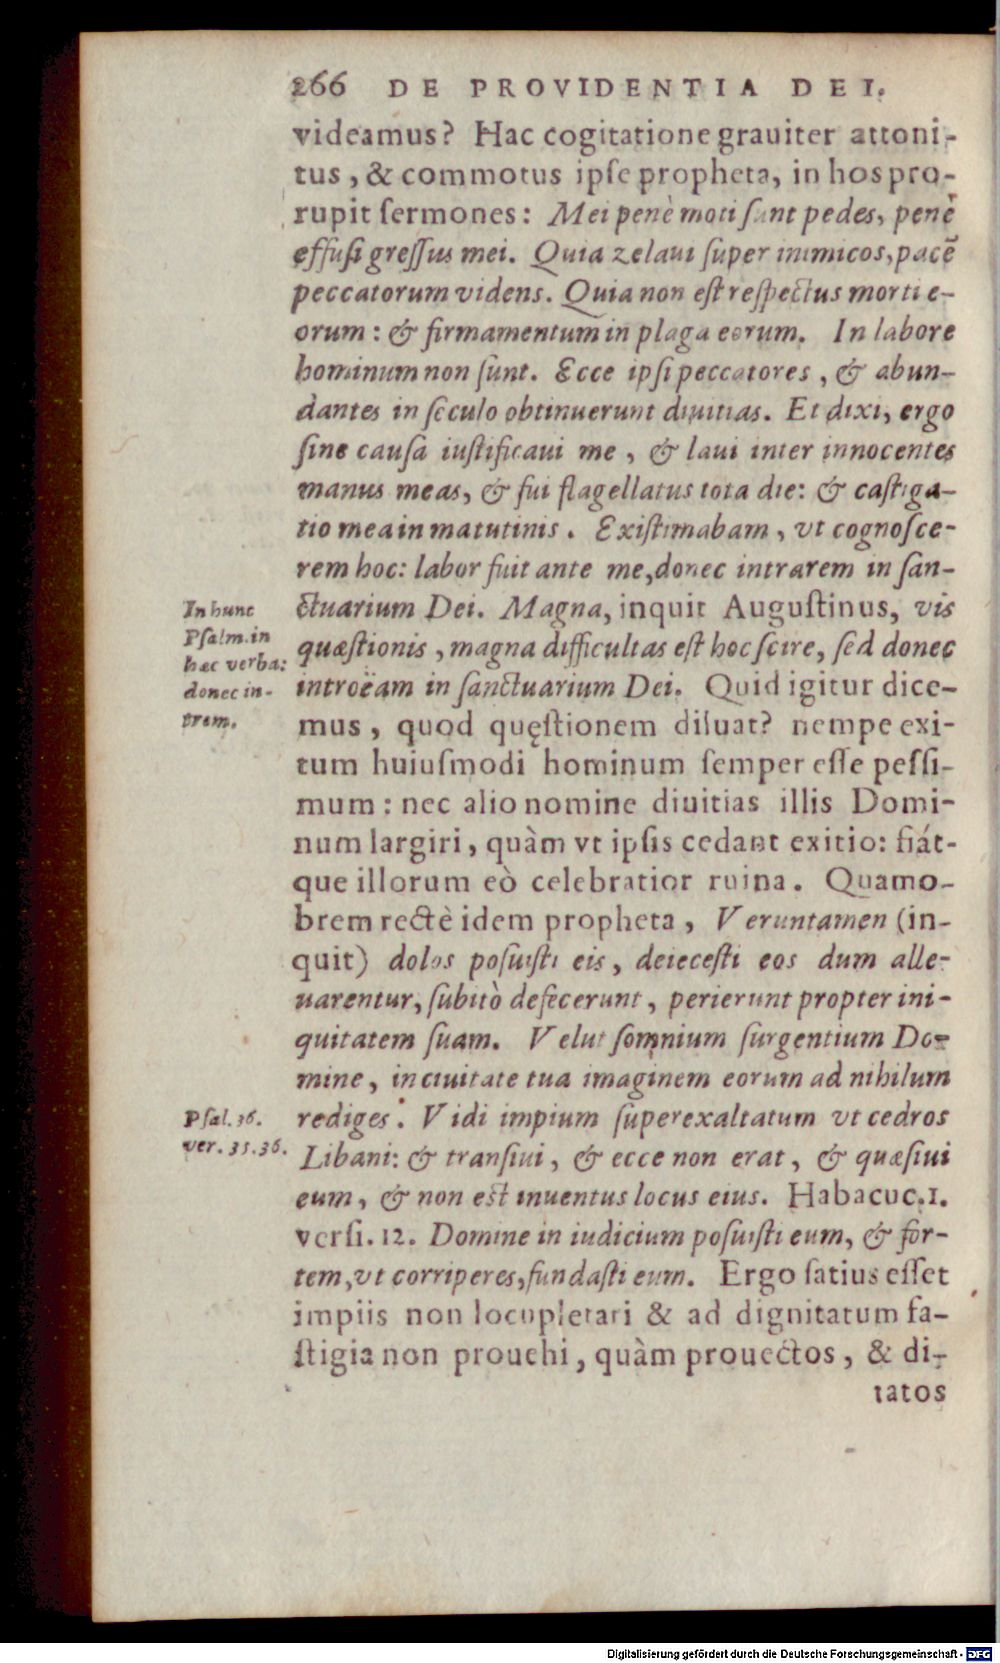 266 DE PROVIDENTIA DEI.
videamus? Hac cogitatione grauiter attoni-
tus, & commotus ipse propheta, in hos pro-
rupit sermones: Mei penè moti sunt pedes, penè
effusi gressus mei. Quia zelaui super inimicos, pacē
peccatorum videns. Quia non est respectus morti e-
orum: & firmamentum in plaga eorum. In labore
hominum non sunt. Ecce ipsi peccatores, & abun-
dantes in seculo obtinuerunt diuitias. Et dixi, ergo
sine causa iustificaui me, & laui inter innocentes
manus meas, & fui flagellatus tota die: & castiga-
tio mea in matutinis. Existimabam, vt cognosce-
rem hoc: labor fuit ante me, donec intrarem in san-
ctuarium Dei. Magna, inquit Augustinus, vis
quæstionis, magna difficultas est hoc scire, sed donec
introëam in sanctuarium Dei. Quid igitur dice-
mus, quod quęstionem diluat? nempe exi-
tum huiusmodi hominum semper esse pessi-
mum: nec alio nomine diuitias illis Domi-
num largiri, quàm vt ipsis cedant exitio: fiát-
que illorum eò celebratior ruina. Quamo-
brem rectè idem propheta, Veruntamen (in-
quit) dolos posuisti eis, deiecesti eos dum alle-
uarentur, subitò defecerunt, perierunt propter ini-
quitatem suam. Velut somnium surgentium Do-
mine, in ciuitate tua imaginem eorum ad nihilum
rediges. Vidi impium superexaltatum vt cedros
Libani: & transiui, & ecce non erat, & quæsiui
eum, & non est inuentus locus eius. Habacuc. 1.
versi. 12. Domine in iudicium posuisti eum, & for-
tem, vt corriperes, fundasti eum. Ergo satius esset
impiis non locupletari & ad dignitatum fa-
stigia non prouehi, quàm prouectos, & di-
tatos
In hunc
Psalm. in
hæc verba:
donec in-
trem.
Psal. 36.
ver. 35. 36.
Digitalisierung gefördert durch die Deutsche Forschungsgemeinschaft - DFG